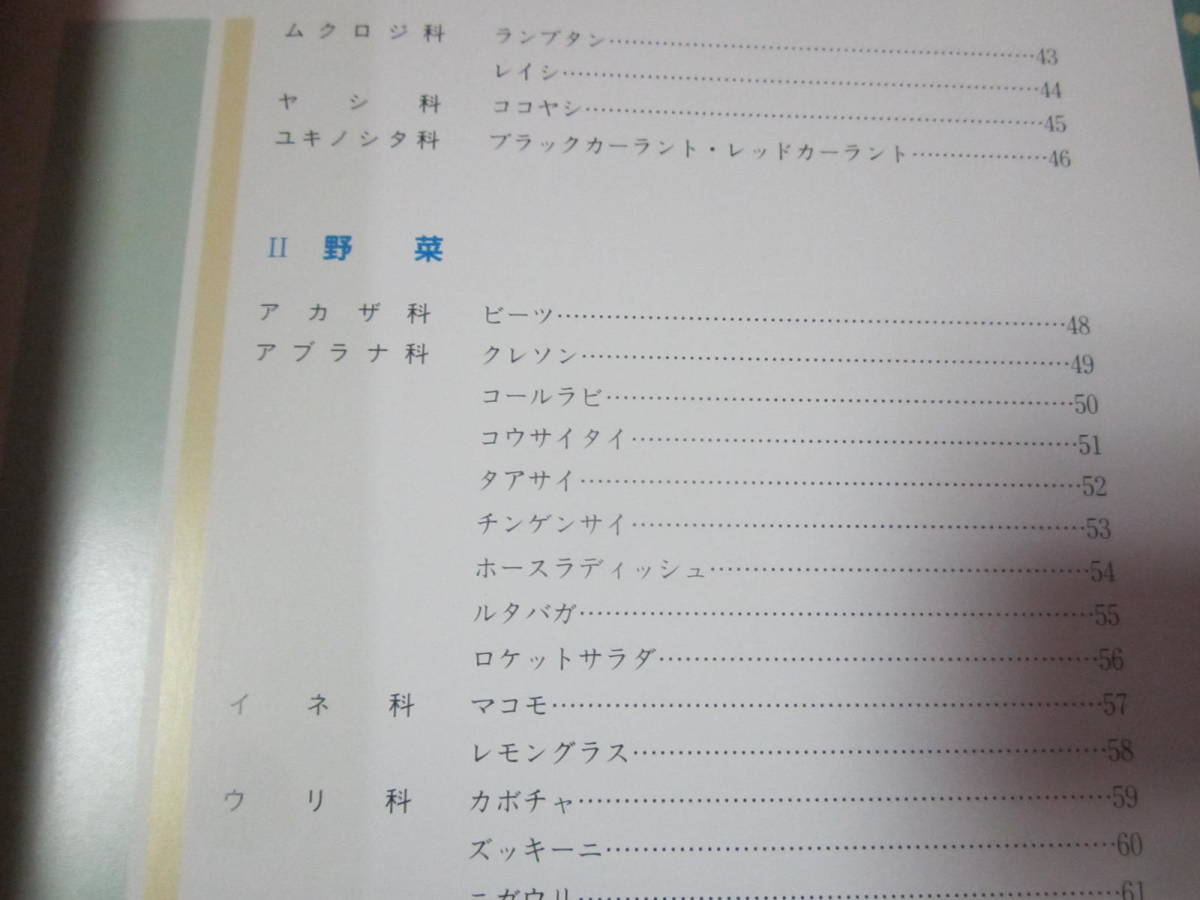 ムクロジ科 ランブタン……………………………………43
レイシ……………………………………44
ヤシ科 ココヤシ……………………………………45
ユキノシタ科 ブラックカーラント・レッドカーラント………………46
II 野菜
アカザ科 ビーツ……………………………………48
アブラナ科 クレソン……………………………………49
コールラビ……………………………………50
コウサイタイ……………………………………51
タアサイ……………………………………52
チンゲンサイ……………………………………53
ホースラディッシュ……………………………………54
ルタバガ……………………………………55
ロケットサラダ……………………………………56
イネ科 マコモ……………………………………57
レモングラス……………………………………58
ウリ科 カボチャ……………………………………59
ズッキーニ……………………………………60
ニガウリ……………………………………61